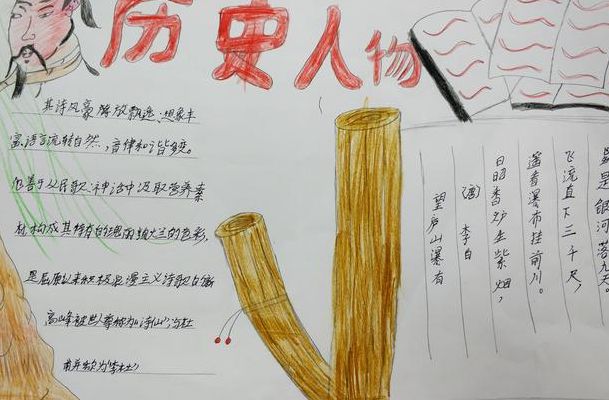 历史人物
其诗风豪放飘逸,想象丰
富,语言流转自然,音律和谐多变。
他善于从民歌、神话中汲取营养素
材,构成其特有的瑰丽绚烂的色彩,
是屈原以来积极浪漫主义诗歌的
高峰,被世人尊称为“诗仙”,与杜
甫并称为“李杜”
望庐山瀑布
(唐) 李白
日照香炉生紫烟,
遥看瀑布挂前川。
飞流直下三千尺,
疑是银河落九天。